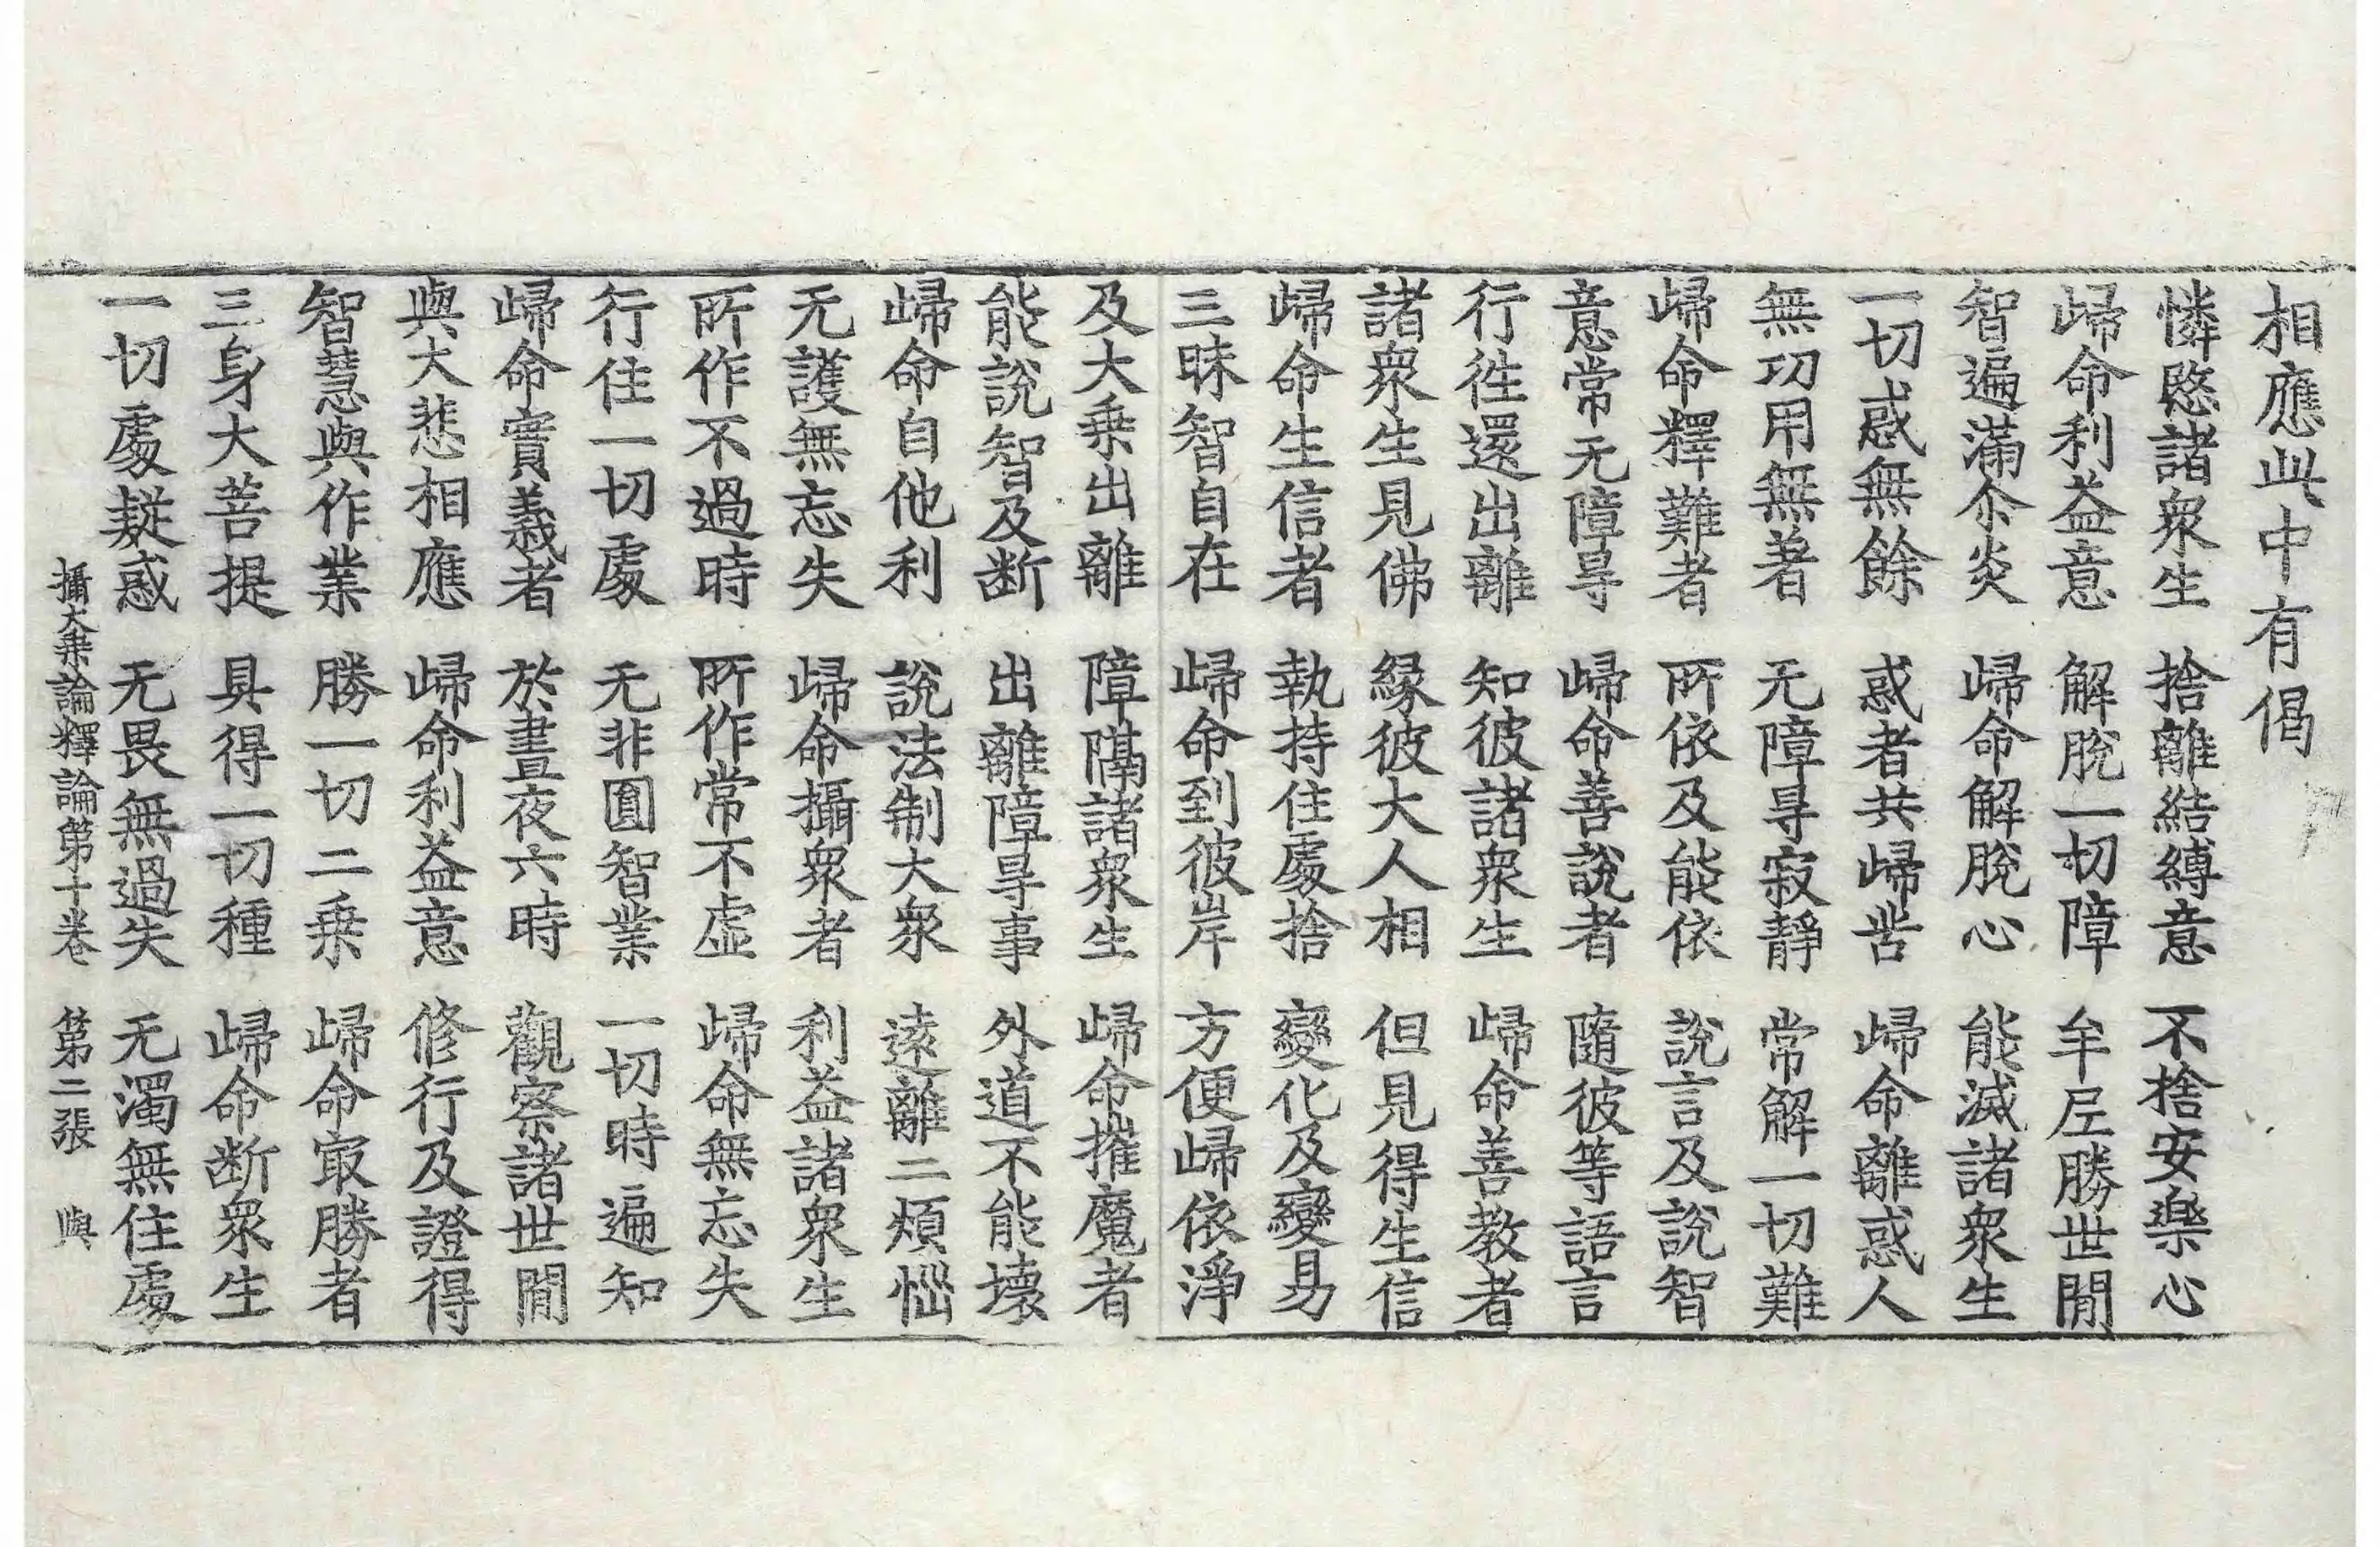 相應此中有偈
憐愍諸衆生　捨離結縛意　不捨安樂心
歸命利益意　解脫一切障　牟尼勝世閒
智遍滿尒炎　歸命解脫心　能滅諸衆生
一切惑無餘　惑者共歸苦　歸命離惑人
無功用無著　无障㝵寂靜　常解一切難
歸命釋難者　所依及能依　說言及說智
意常无障㝵　歸命善說者　隨彼等語言
行徃還出離　知彼諸衆生　歸命善教者
諸衆生見佛　緣彼大人相　但見得生信
歸命生信者　執持住處捨　變化及變易
三昧智自在　歸命到彼岸　方便歸依淨
及大乗出離　障隔諸衆生　歸命摧魔者
能說智及断　出離障㝵事　外道不能壞
歸命自他利　說法制大衆　遠離二煩惱
无護無忘失　歸命攝衆者　利益諸衆生
所作不過時　所作常不虛　歸命無忘失
行住一切處　无非圓智業　一切時遍知
歸命實義者　於晝夜六時　觀察諸世閒
與大悲相應　歸命利益意　修行及證得
智慧與作業　勝一切二乗　歸命㝡勝者
三身大菩提　具得一切種　歸命断衆生
一切處疑惑　无畏無過失　无濁無住處
攝大乗論釋論第十卷　第二張　與